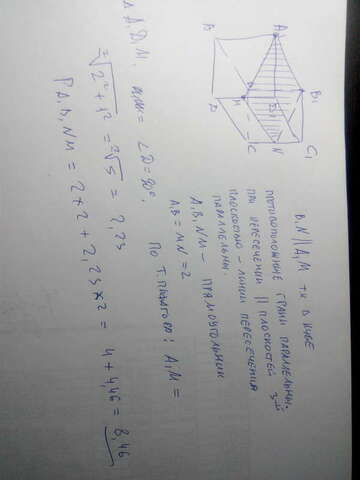 A₁
B
B₁
D
M
D₁
C
N
C₁
B₁N || A₁M т.к в кубе
противоположные грани параллельны.
при пересечении || плоскостей 3-й
плоскостью - линии пересечения
параллельны.
A₁B₁NM - прямоугольник
A₁B₁ = MN = 2
По т. Пифагора: A₁M =
∠D = 90°.
²√2² + 1² = ²√5 = 2,23
P A₁B₁NM = 2×2 + 2,23×2 = 4 + 4,46 = 8,46